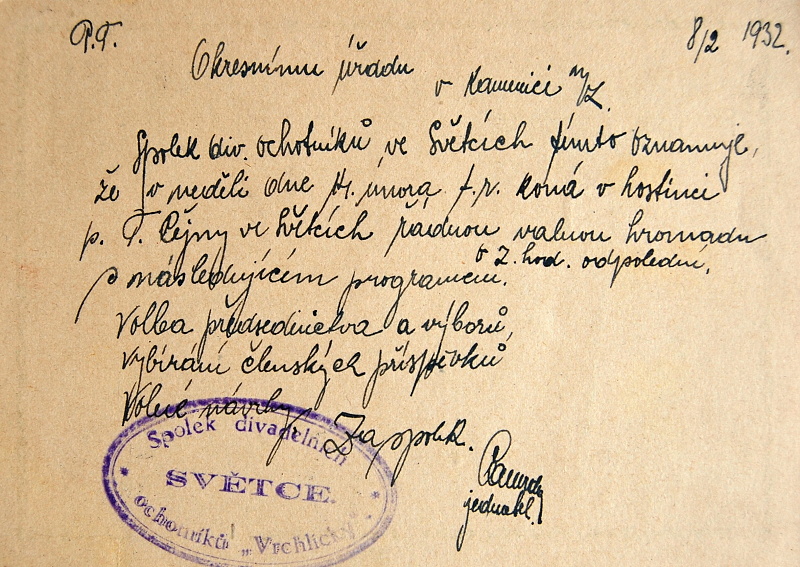 P.T.
8/2 1932.
Okresnímu úřadu
v Kamenici n/L.
Spolek div. ochotníků ve Světcích tímto oznamuje,
že v neděli dne 14. února t.r. koná v hostinci
p. F. Čejny ve Světcích řádnou valnou hromadu
v 2. hod. odpolední,
s následujícím programem.
Volba předsednictva a výborů,
vybírání členských příspěvků
Volné návrhy
Za spolek.
jednatel.
Spolek divadelních
SVĚTCE.
ochotníků „Vrchlický"